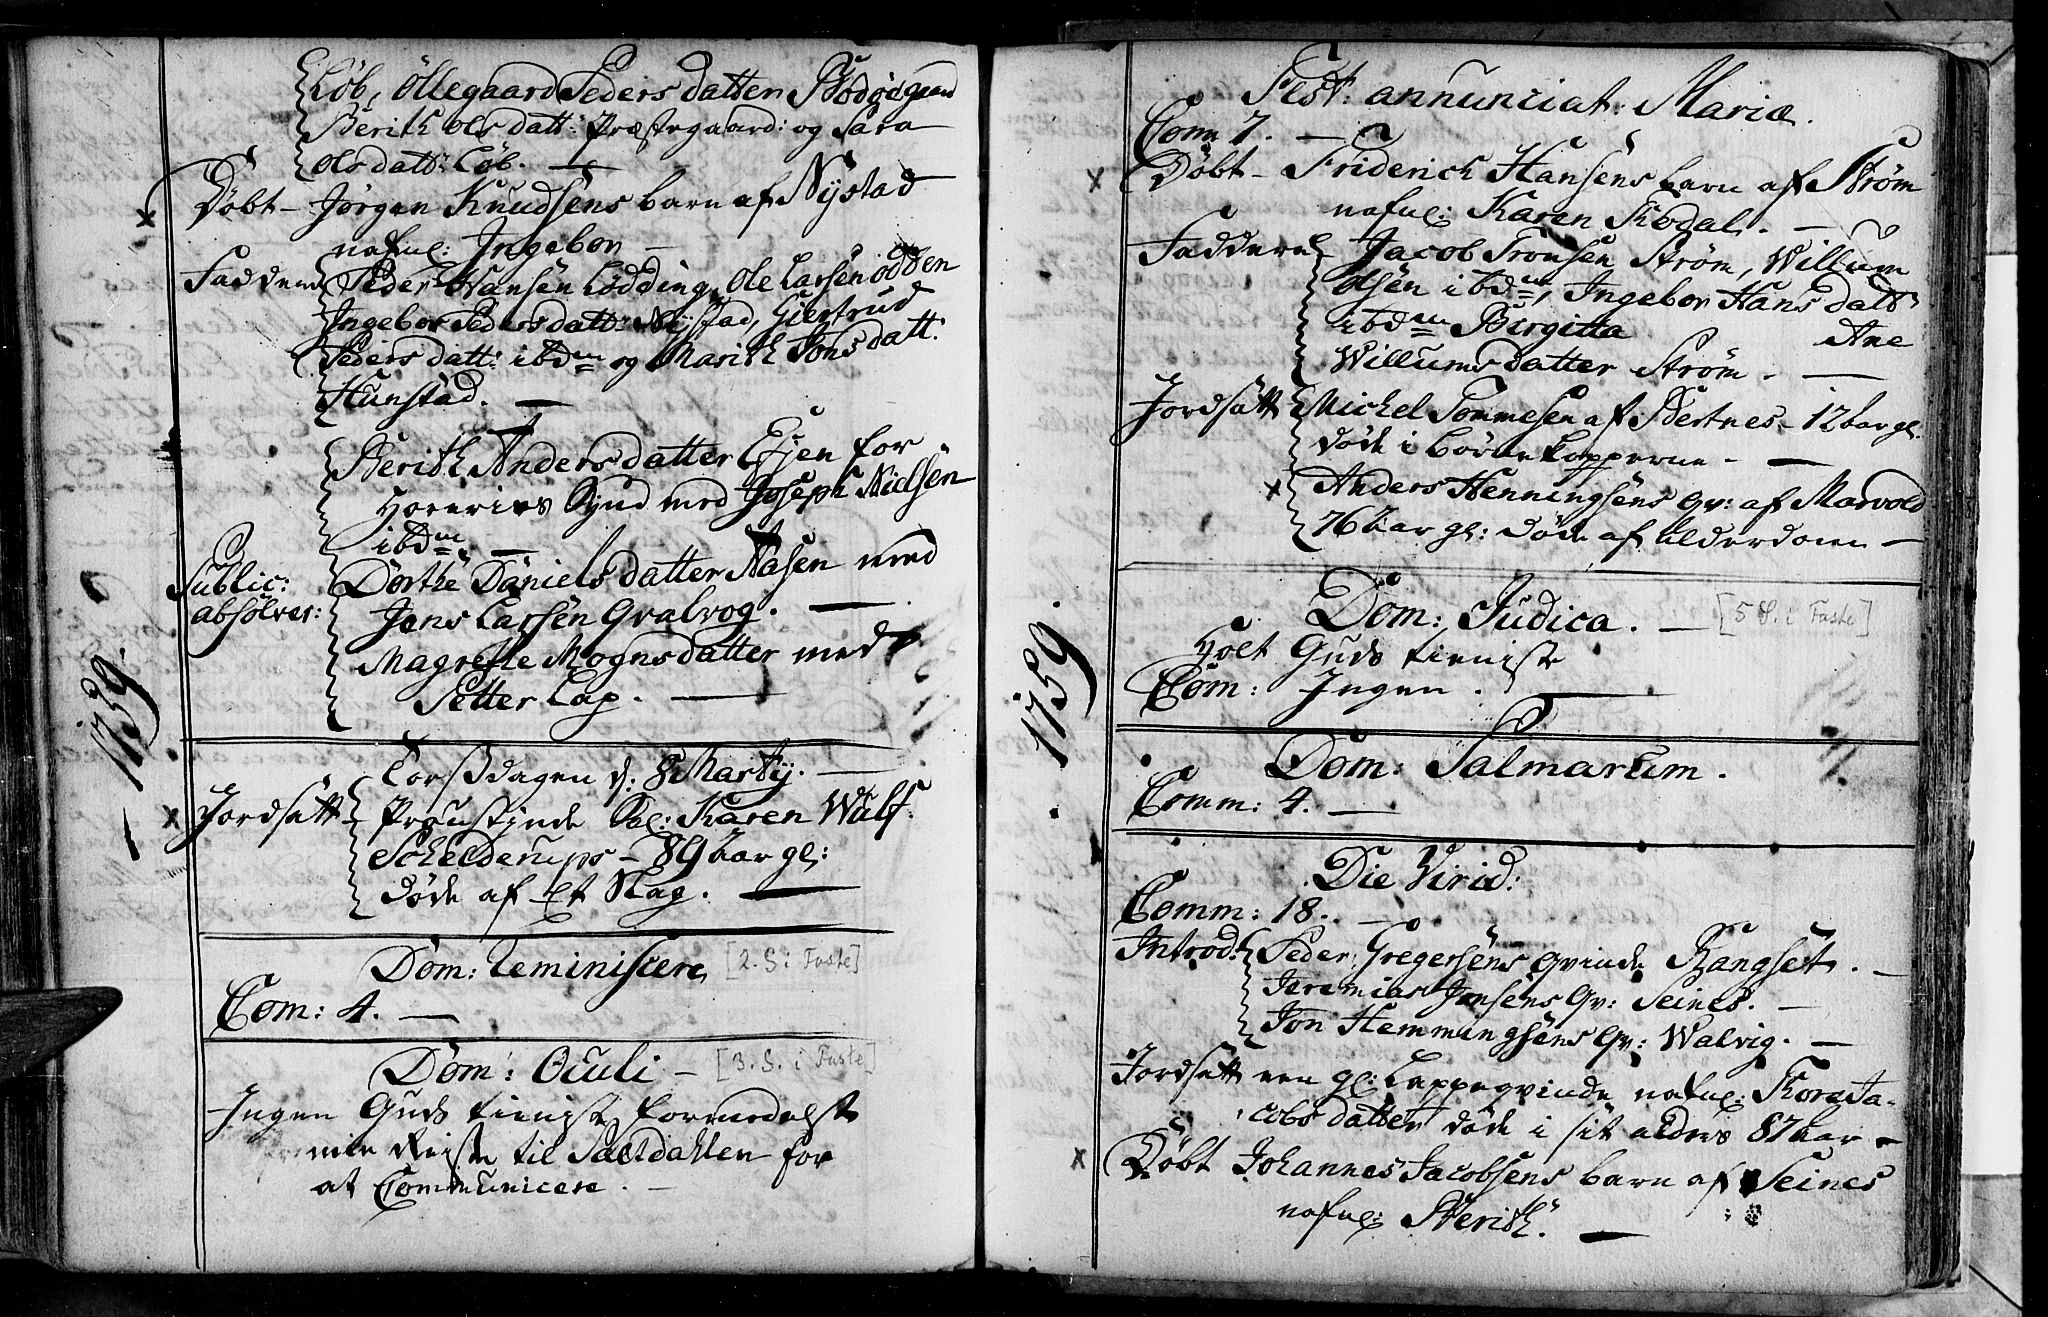 Løb, Ollegaard Peders datter Bodøegaard
Berith Ols datt: Præstegaard: og Sara
Ols datt: Løb.
Döbt – Jørgen Knudsens barn af Nystad
nafnl: Ingebor –
Faddere Peder Hansen Lødding, Ole Larsen Odden
Ingebor Peders datt: Nystad, Giertrud
Peders datt: ibdm og Marith Jons datt:
Hunstad. –
Berith Anders datter Ejen for
Horeries Synd med Joseph Nielsen
ibdm. –
Public: absolver: Dorthe Daniels datter Aasen med
Jens Larsen Qvalvog. –
Magrethe Mogns datter med
Petter Lap. –
1759.
Torssdagen d: 8 Marty. –
Jordsatt – Proustinde Sal: Karen Wulf
Schelderups – 89 aar gl:
døde af et Slag. –
Dom: Reminiscere [2. S i Faste]
Com: 4. –
Dom: Oculi – [3. S. i Faste]
Ingen Guds tieniste formedelst
min Reise til Saltdahlen for
at Communicere. –
Fest: annunciat: Mariæ.
Com 7. –
Döbt – Friderich Hansens barn af Strøm
nafnl: Karen Kodal. –
Faddere – Jacob Tronsen Strøm, Willum
Olsen ibdm, Ingebor Hans datt:
ibdm Birgitta Ane
Willums datter Strøm. –
Jordsatt Michel Tommesen af Bertnes – 12 aar gl.
døde i børne kopperne – –
Anders Henningsens qv: af Marvold
76 aar gl: døde af alderdom –
Dom: Judica. – [5 S. i Faste]
Holt Guds tieniste
Com: Ingen. –
1759.
Dom: Palmarum.
Comm: 4. –
Die Virid:
Comm: 18. –
Introd: Peder Gregersens qvinde Skangset. –
Jeremias Jensens qv: Seines. –
Jon Hemmingsens qv: Walvig. –
Jordsatt een gl: Lappeqvinde nafnl: Kore Ja-
cobs datter døde i sit alders 87 aar –
Döbt Johannes Jacobsens barn af Seines
nafnl: Berith. –